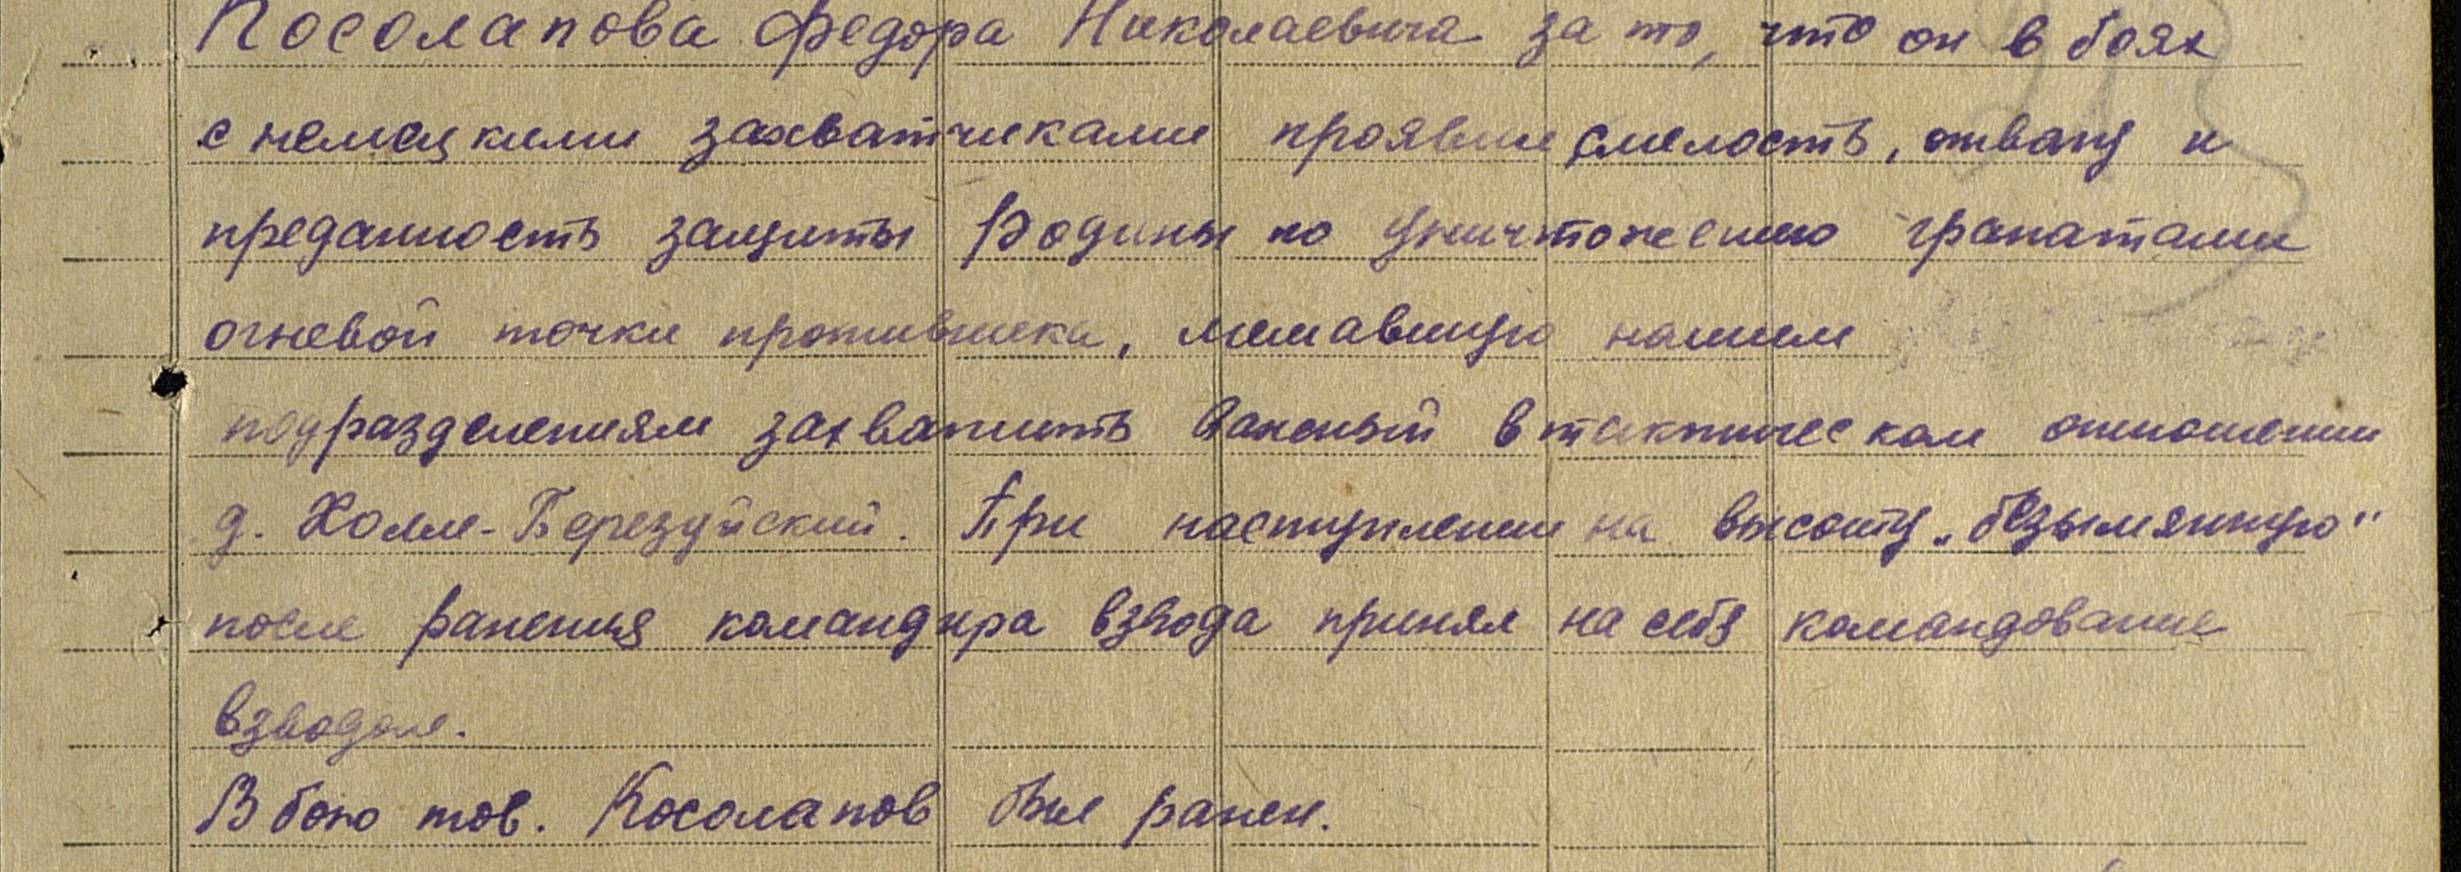 Косолапова Федора Николаевича за то, что он в боях
с немецкими захватчиками проявил смелость, отвагу и
преданность защиты Родины по уничтожению гранатами
огневой точки противника, мешавшую нашим
подразделениям захватить важный в тактическом отношении
д. Холм-Березуйский. При наступлении на высоту „безымянную"
после ранения командира взвода принял на себя командование
взводом.
В бою тов. Косолапов был ранен.